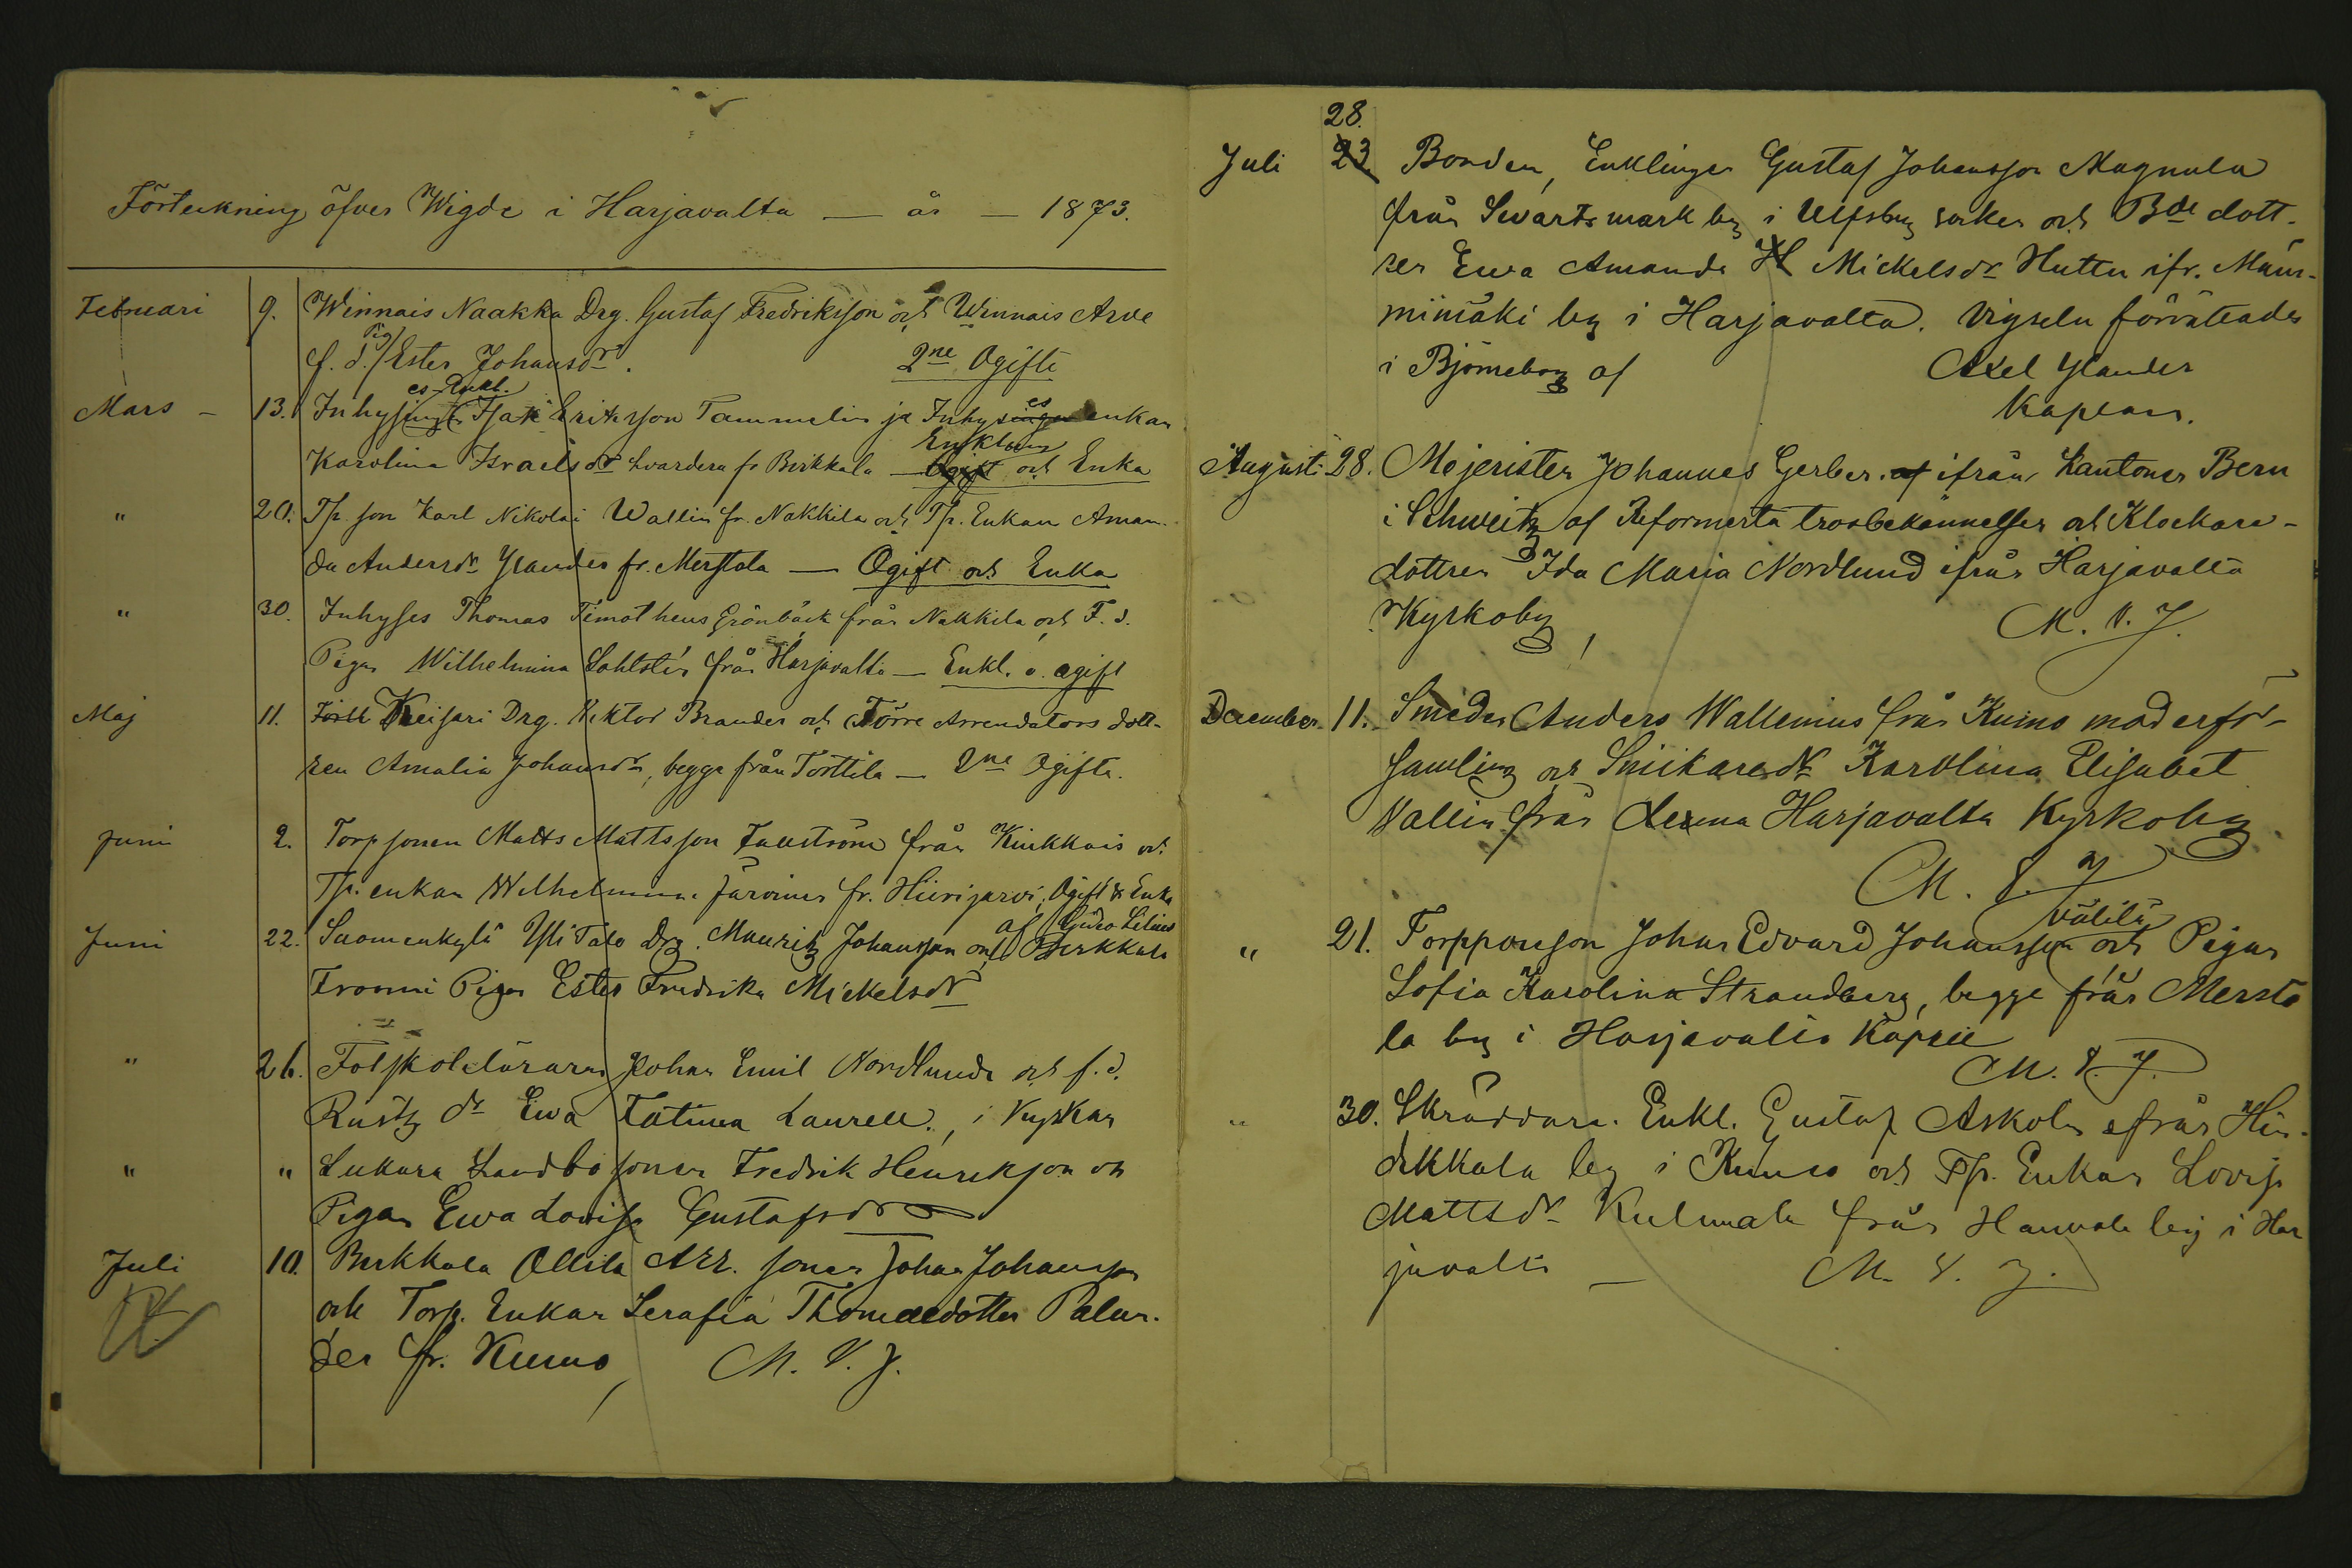 Förteckning öfver Wigde i Harjavalta — år — 1873.
Februari 9. Winnais Naakka Drg. Gustaf Fredriksson och Winnais Arve
f. d. Pig. Ester Johansdr. 2ne Ogifte
Mars – 13. Inhyses Enkl. Isak Eriksson Tammelin ja Inhyses enkan
Karolina Israelsdr hvardera fr Birkkala — Enkling och Enka
" 20. Tp. son Karl Nikolai Wallin fr. Nakkila och Tp. Enkan Aman-
da Andersdr Ylander fr. Merstola — Ogift och Enka
" 30. Inhyses Thomas Timotheus Grönbäck från Nakkila och F. d.
Pigan Wilhelmina Lohlstén från Harjavalta — Enkl. o. ogift
Maj 11. Keisari Drg. Viktor Brander och Torre Arrendators dott-
ren Amalia Johansdr, begge från Torttila — 2ne Ogifta.
Juni 2. Torpsonen Matts Mattsson Fallström från Kiukkais och
Tp. enkan Wilhelmina Järvinen fr. Hiirijarvi, Ogift & Enka
Juni 22. Suomenkylä Yli Talo Drg. Mauritz Johansson och Birkkala
af Guido Lilius
Frommi Pigan Ester Fredrika Mickelsdr
" 26. Folkskoleläraren Johan Emil Nordlund och f. d.
Rustg dr Ewa Fatima Laurell, i Kyrkan
" " Lukara Landbosonen Fredrik Henriksson och
Pigan Ewa Lovisa Gustafsdr
Juli 10. Birkkala Ollila Arr. sonen Johan Johansson
och Torp. Enkan Serafia Thomasdotter Palan-
der fr. Kumo, M. V. J.
Juli 28. 23. Bonden, Enklingen Gustaf Johansson Magnula
från Svartsmark by i Ulfsby socken och Bde dott-
ren Ewa Amanda H Mickelsdr Huttu ifr. Mam-
miimäki by i Harjavalta. Vigseln förrättades
i Björneborg af Axel Ylander
Kaplan.
Augusti 28. Mejeristen Johannes Gerber af ifrån Kantonen Bern
i Schweitz af Reformerta trosbekännelsen och Klockare-
dottren Ida Maria Nordlund ifrån Harjavalta
Kyrkoby, M. V. J.
December 11. Smeden Anders Wallenius från Kumo moderför-
samling och Snickaredr Karolina Elisabet
Wallin från denna Harjavalta Kyrkoby
M. V. J.
" 21. Torppareson Johan Edvard Johansson Välilä och Pigan
Sofia Karolina Strandberg, begge från Mersto
la by i Harjavalta Kapell
M. V. J.
" 30. Skräddare. Enkl. Gustaf Askola ifrån Hin-
dikkala by i Kumo och Tp. Enkan Lovisa
Mattsdr Kulmala från Hannola by i Har
javalta — M. V. J.